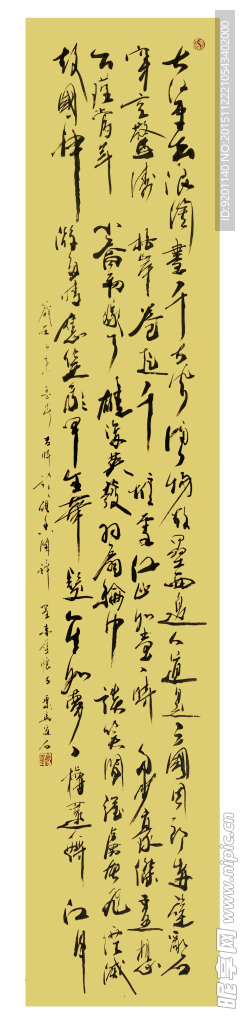 大江东去浪淘尽千古风流物故垒西边人道是三国周郎赤壁乱石
穿空惊涛拍岸卷起千堆雪江山如画一时多少豪杰遥想
公瑾当年小乔初嫁了雄姿英发羽扇纶巾谈笑间强虏灰飞烟灭
故國神游多情应笑我早生华髮人间如梦一樽还酹江月
昵享网 www.nipic.com
ID:9201140 NO:20151122210543402000